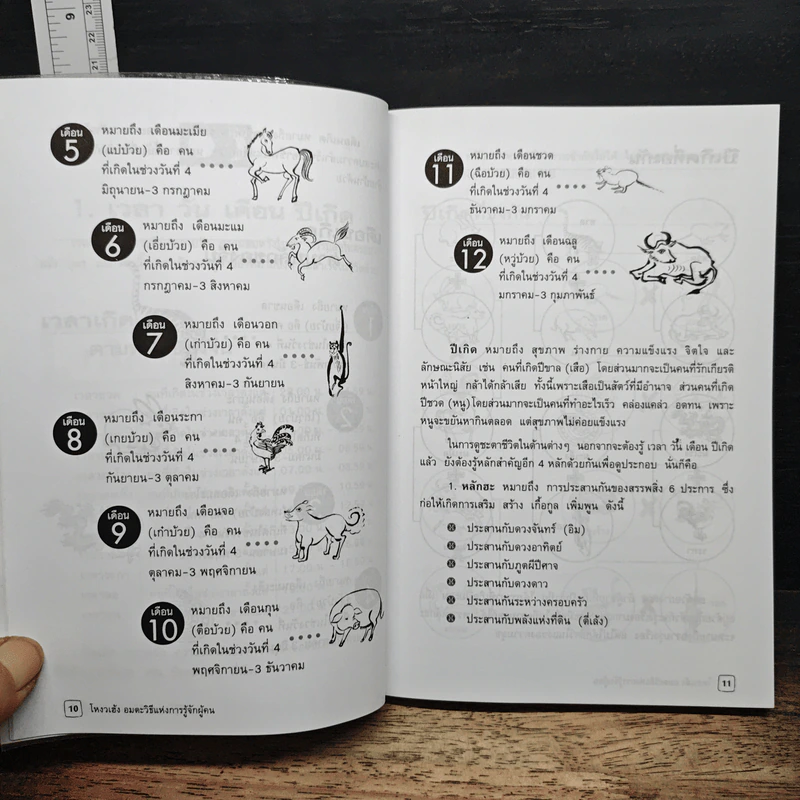 เดือน
5
หมายถึง เดือนมะเมีย
(แบ่บ้วย) คือ คน
ที่เกิดในช่วงวันที่ 4
มิถุนายน-3 กรกฎาคม
เดือน
6
หมายถึง เดือนมะแม
(เอี่ยบ้วย) คือ คน
ที่เกิดในช่วงวันที่ 4
กรกฎาคม-3 สิงหาคม
เดือน
7
หมายถึง เดือนวอก
(เก่าบ้วย) คือ คน
ที่เกิดในช่วงวันที่ 4
สิงหาคม-3 กันยายน
เดือน
8
หมายถึง เดือนระกา
(เกยบ้วย) คือ คน
ที่เกิดในช่วงวันที่ 4
กันยายน-3 ตุลาคม
เดือน
9
หมายถึง เดือนจอ
(เก๋าบ้วย) คือ คน
ที่เกิดในช่วงวันที่ 4
ตุลาคม-3 พฤศจิกายน
เดือน
10
หมายถึง เดือนกุน
(ตือบ้วย) คือ คน
ที่เกิดในช่วงวันที่ 4
พฤศจิกายน-3 ธันวาคม
10 โหงวเฮ้ง อมตะวิธีแห่งการรู้จักผู้คน
เดือน
11
หมายถึง เดือนชวด
(ฉือบ้วย) คือ คน
ที่เกิดในช่วงวันที่ 4
ธันวาคม-3 มกราคม
เดือน
12
หมายถึง เดือนฉลู
(หงู่บ้วย) คือ คน
ที่เกิดในช่วงวันที่ 4
มกราคม-3 กุมภาพันธ์
ปีเกิด หมายถึง สุขภาพ ร่างกาย ความแข็งแรง จิตใจ และ
ลักษณะนิสัย เช่น คนที่เกิดปีขาล (เสือ) โดยส่วนมากจะเป็นคนที่รักเกียรติ
หน้าใหญ่ กล้าได้กล้าเสีย ทั้งนี้เพราะเสือเป็นสัตว์ที่มีอำนาจ ส่วนคนที่เกิด
ปีชวด (หนู)โดยส่วนมากจะเป็นคนที่ทำอะไรเร็ว คล่องแคล่ว อดทน เพราะ
หนูจะขยันหากินตลอด แต่สุขภาพไม่ค่อยแข็งแรง
ในการดูชะตาชีวิตในด้านต่างๆ นอกจากจะต้องรู้ เวลา วัน เดือน ปีเกิด
แล้ว ยังต้องรู้หลักสำคัญอีก 4 หลักด้วยกันเพื่อดูประกอบ นั่นก็คือ
1. หลักฮะ หมายถึง การประสานกันของสรรพสิ่ง 6 ประการ ซึ่ง
ก่อให้เกิดการเสริม สร้าง เกื้อกูล เพิ่มพูน ดังนี้
ประสานกับดวงจันทร์ (อิม)
ประสานกับดวงอาทิตย์
ประสานกับภูตผีปีศาจ
ประสานกับดวงดาว
ประสานกันระหว่างครอบครัว
ประสานกับพลังแห่งที่ดิน (ตี่เล้ง)
11